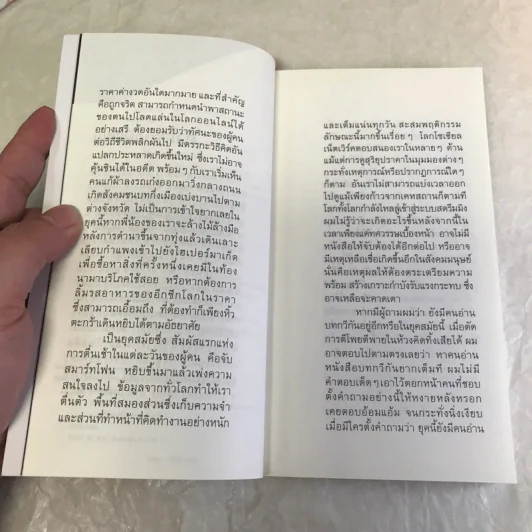 ราคาค่างวดอันใดมากมาย และที่สำคัญ
คือถูกจริต สามารถกำหนดนำพาสถานะ
ของตนไปโลดแล่นในโลกออนไลน์ได้
อย่างเสรี ต้องยอมรับว่าทัศนะของผู้คน
ต่อวิถีชีวิตพลิกผันไป มีตรรกะวิธีคิดอัน
แปลกประหลาดเกิดขึ้นใหม่ ซึ่งเราไม่อาจ
คุ้นชินได้ในอดีต พร้อม ๆ กับเราเริ่มเห็น
คนแก้ผ้าลงรถเก๋งออกมาวิ่งกลางถนน
เกิดสังคมชนบทกึ่งเมืองเบ่งบานไปตาม
ต่างจังหวัด ไม่เป็นการเข้าใจยากเลยใน
ยุคนี้หากพี่น้องของเราจะล้างไม้ล้างมือ
หลังการดำนาขึ้นจากทุ่งแล้วเดินเลาะ
เลียบกำแพงเข้าไปยังไฮเปอร์มาเก็ต
เพื่อซื้อหาสิ่งที่ครั้งหนึ่งเคยมีในท้อง
นามาบริโภคใช้สอย หรือหากต้องการ
ลิ้มรสอาหารของอีกซีกโลกในราคา
ซึ่งสามารถเอื้อมถึง ที่ต้องทำก็เพียงหิ้ว
ตะกร้าเดินหยิบได้ตามอัธยาศัย
เป็นยุคสมัยซึ่ง สัมผัสแรกแห่ง
การตื่นเช้าในแต่ละวันของผู้คน คือจับ
สมาร์ทโฟน หยิบขึ้นมาแล้วเพ่งความ
สนใจลงไป ข้อมูลจากทั่วโลกทำให้เรา
ตื่นตัว พื้นที่สมองส่วนซึ่งเก็บความจำ
และส่วนที่ทำหน้าที่คิดทำงานอย่างหนัก
และเต็มแน่นทุกวัน สะสมพฤติกรรม
ลักษณะนี้มากขึ้นเรื่อย ๆ โลกโซเชียล
เน็ตเวิร์คตอบสนองเราในหลาย ๆ ด้าน
แม้แต่การดูสุริยุปราคาในมุมมองต่าง ๆ
กระทั่งเหตุการณ์หรือปรากฏการณ์ใด ๆ
ก็ตาม อันเราไม่สามารถแบ่งเวลาออก
ไปดูแม้เพียงก้าวจากเคหสถานก็ตามที
โลกทั้งโลกกำลังไหลลู่เข้าสู่ระบบสตรีมมิ่ง
ผมไม่รู้ว่าจะเกิดอะไรขึ้นหลังจากนี้ใน
เวลาเพียงแค่ทศวรรษเบื้องหน้า อาจไม่มี
หนังสือให้จับต้องได้อีกต่อไป หรืออาจ
มีเหตุเหลือเชื่อเกิดขึ้นอีกในสังคมมนุษย์
นั่นคือเหตุผลให้ต้องตระเตรียมความ
พร้อม สร้างเกราะกำบังรับแรงกระทบ ซึ่ง
อาจเหลือจะคาดเดา
หากมีผู้ถามผมว่า ยังมีคนอ่าน
บทกวีกันอยู่อีกหรือในยุคสมัยนี้ เมื่อตัด
การตีโพยตีพายในห้วงคิดทิ้งเสียได้ ผม
อาจตอบไปตามตรงเลยว่า หาคนอ่าน
หนังสือบทกวีกันยากเต็มที ผมไม่มี
คำตอบเด็ด ๆ เอาไว้ตอกหน้าคนที่ชอบ
ตั้งคำถามอย่างนี้ให้หงายหลังหรอก
เคยตอบอ้อมแอ้ม จนกระทั่งนิ่งเงียบ
เมื่อมีใครตั้งคำถามว่า ยุคนี้ยังมีคนอ่าน